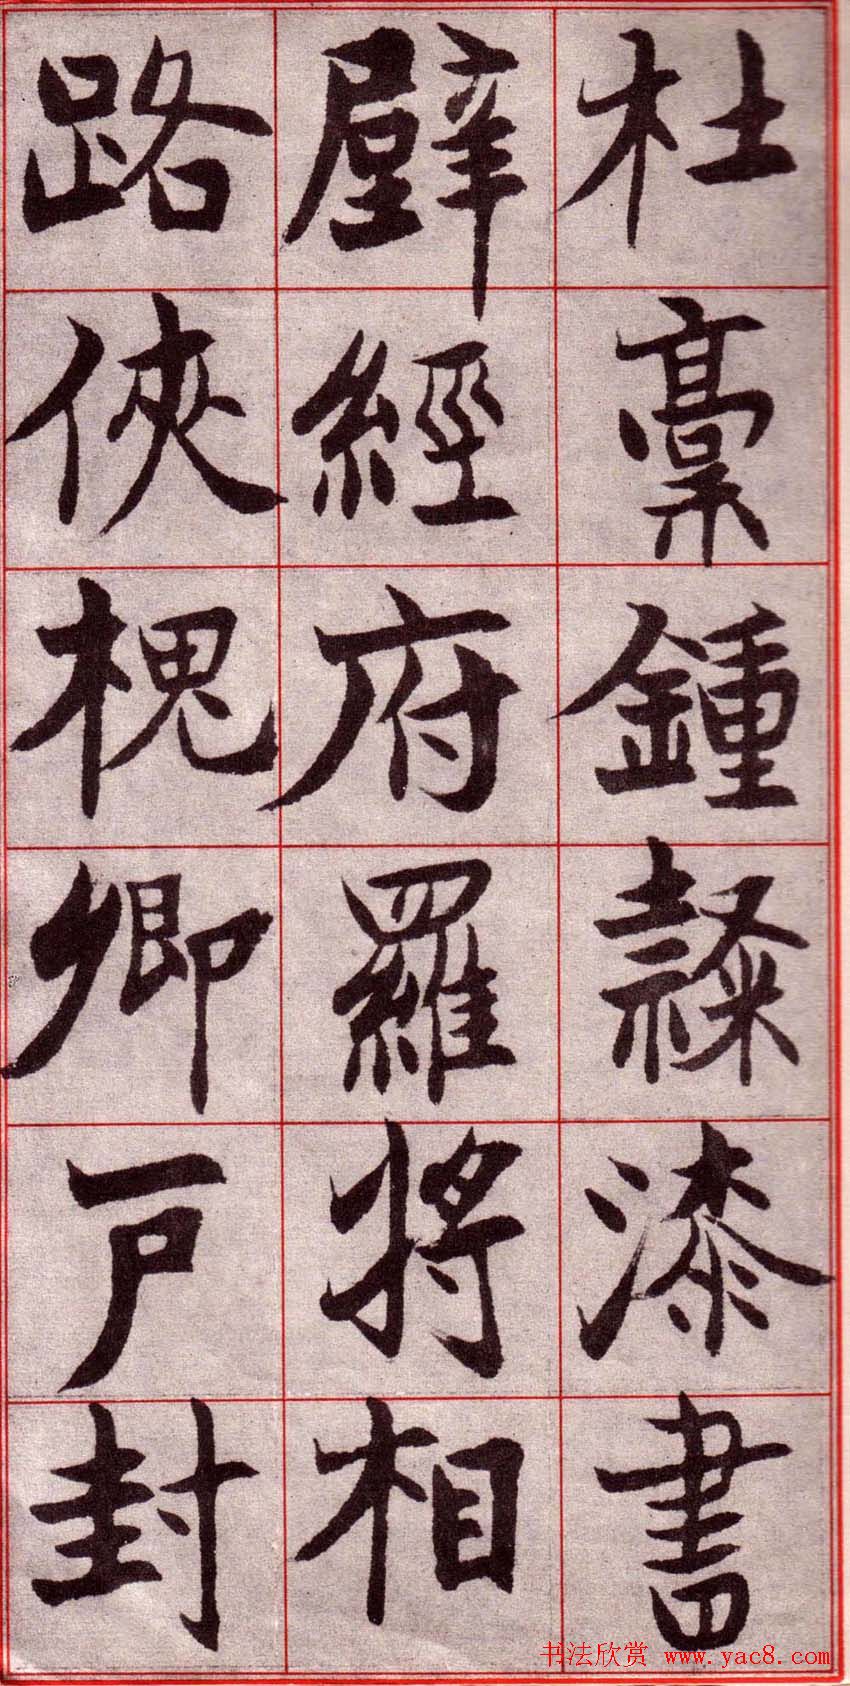 杜稾鍾隸漆書
壁經府羅將相
路俠槐卿戶封
书法欣赏 www.yac8.com